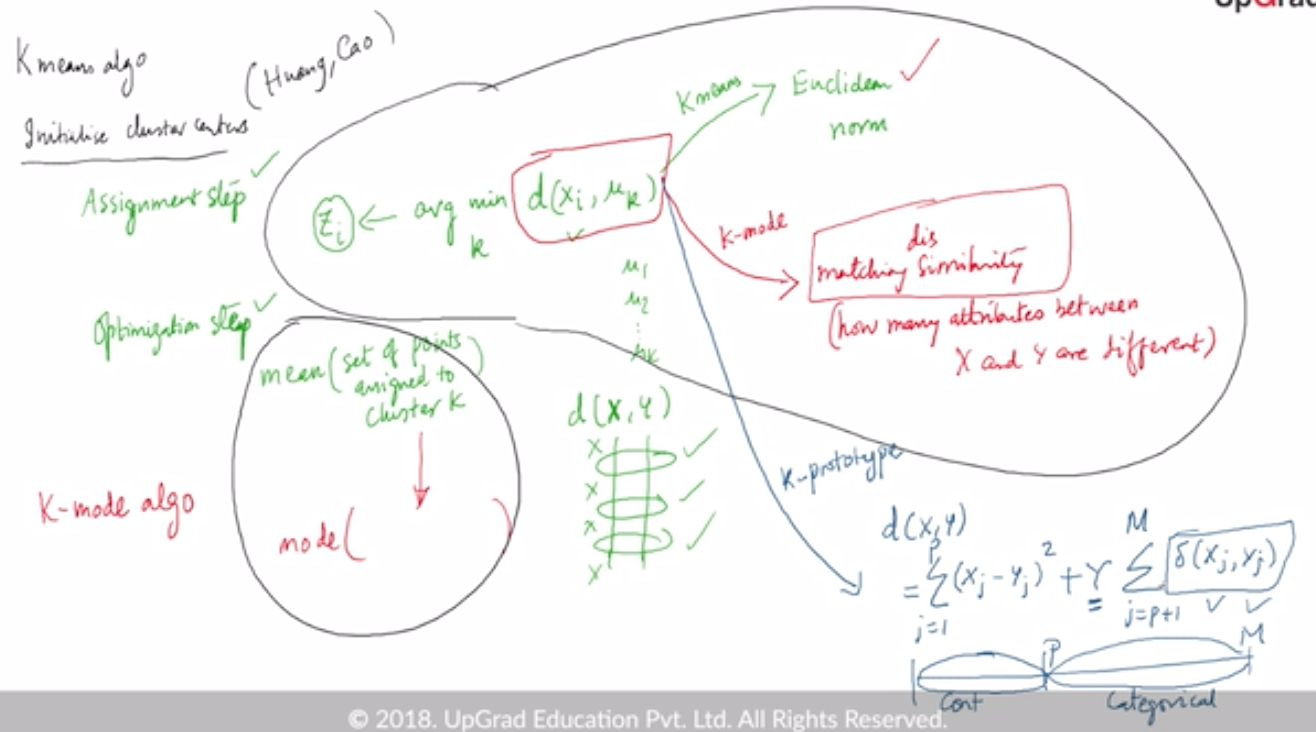 UpGrad
K means algo
(Huang, Cao)
Initialise cluster centers
Assignment step ✓
Z_i ← arg min d(x_i, μ_k)
k
K means
Euclidean ✓
norm
K-mode
dis
matching similarity
(how many attributes between
X and Y are different)
μ_1
μ_2
⋮
μ_k
Optimization step ✓
mean(set of points
assigned to
cluster K)
d(X, Y)
x ✓
x ✓
x ✓
x
K-mode algo
mode( )
K-prototype
d(X,Y)
= Σ_{j=1}^{P} (X_j - Y_j)^2 + γ Σ_{j=P+1}^{M} δ(X_j, Y_j)
P M
Cont Categorical
© 2018. UpGrad Education Pvt. Ltd. All Rights Reserved.